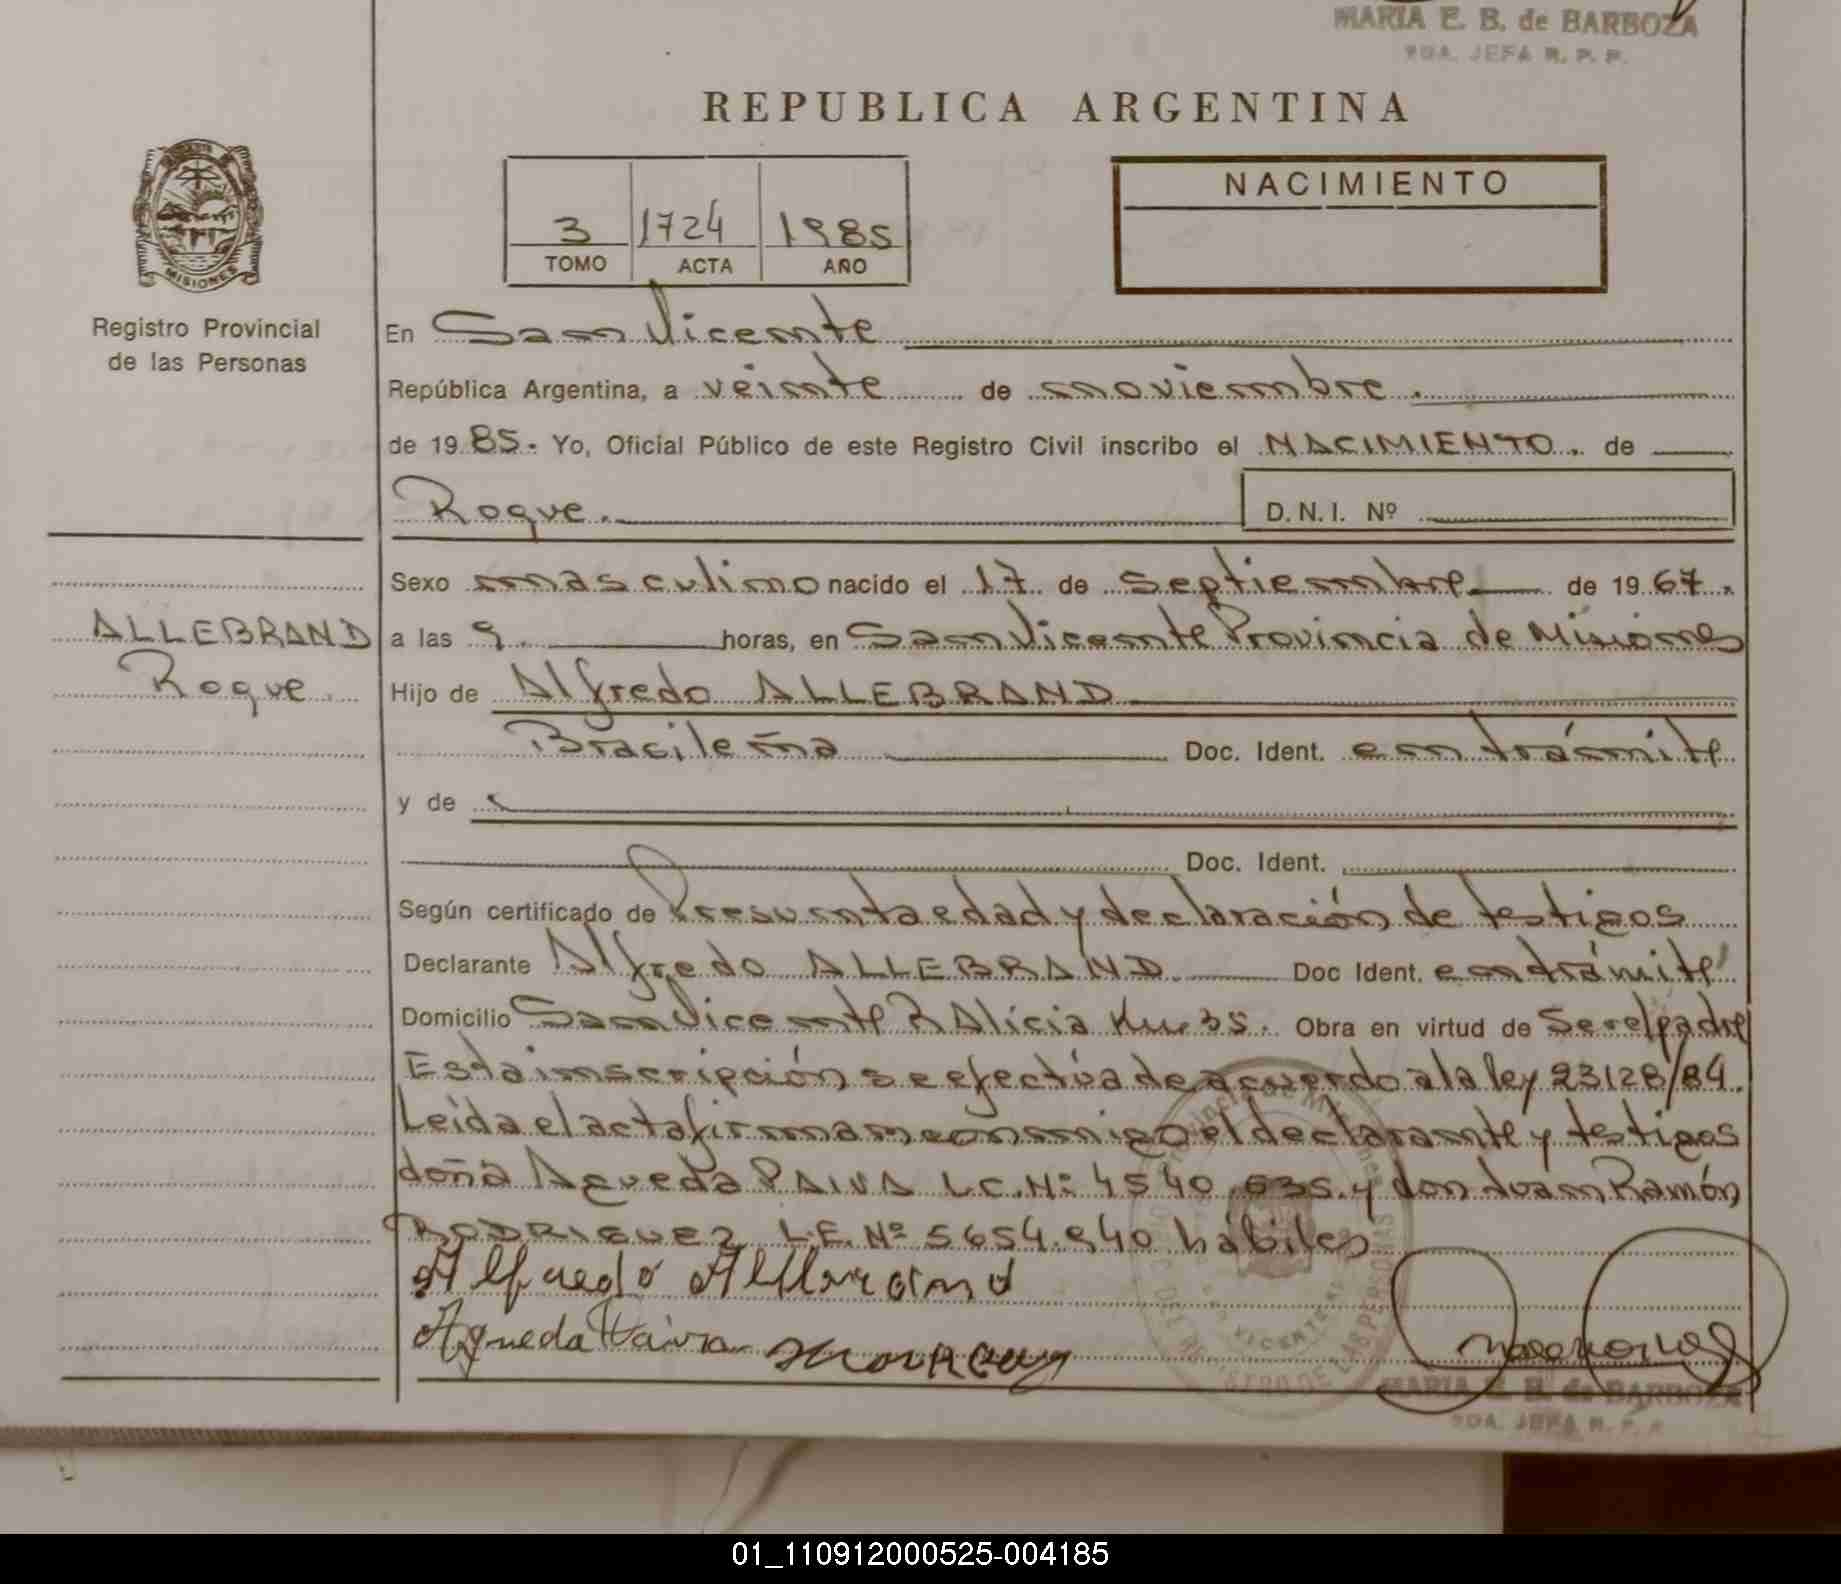 MARIA E. B. de BARBOZA
2DA. JEFA R. P. P.
REPUBLICA ARGENTINA
NACIMIENTO
3 1724 1985
TOMO ACTA AÑO
MISIONES
Registro Provincial
de las Personas
En San Vicente
República Argentina, a veinte de noviembre.
de 1985. Yo, Oficial Público de este Registro Civil inscribo el NACIMIENTO. de
Roque.
D.N.I. Nº
Sexo masculino nacido el 17 de septiembre de 1967.
ALLEBRAND
Roque.
a las 9. horas, en San Vicente Provincia de Misiones
Hijo de Alfredo ALLEBRAND
Brasileña Doc. Ident. en trámite
y de
Doc. Ident.
Según certificado de Presunta edad y declaración de testigos
Declarante Alfredo ALLEBRAND Doc Ident. en trámite
Domicilio San Vicente P. Alicia Km 35. Obra en virtud de Ser el padre
Esta inscripción se efectúa de acuerdo a la ley 23128/84.
Leída el acta firman conmigo el declarante y testigos
doña Agueda PAIVA L.C. Nº 4540.635. y don Juan Ramón
RODRIGUEZ L.E. Nº 5654.940 hábiles
Alfredo Allebrand
Agueda Paiva
MARIA E. B. de BARBOZA
2DA. JEFA R. P. P.
01_110912000525-004185